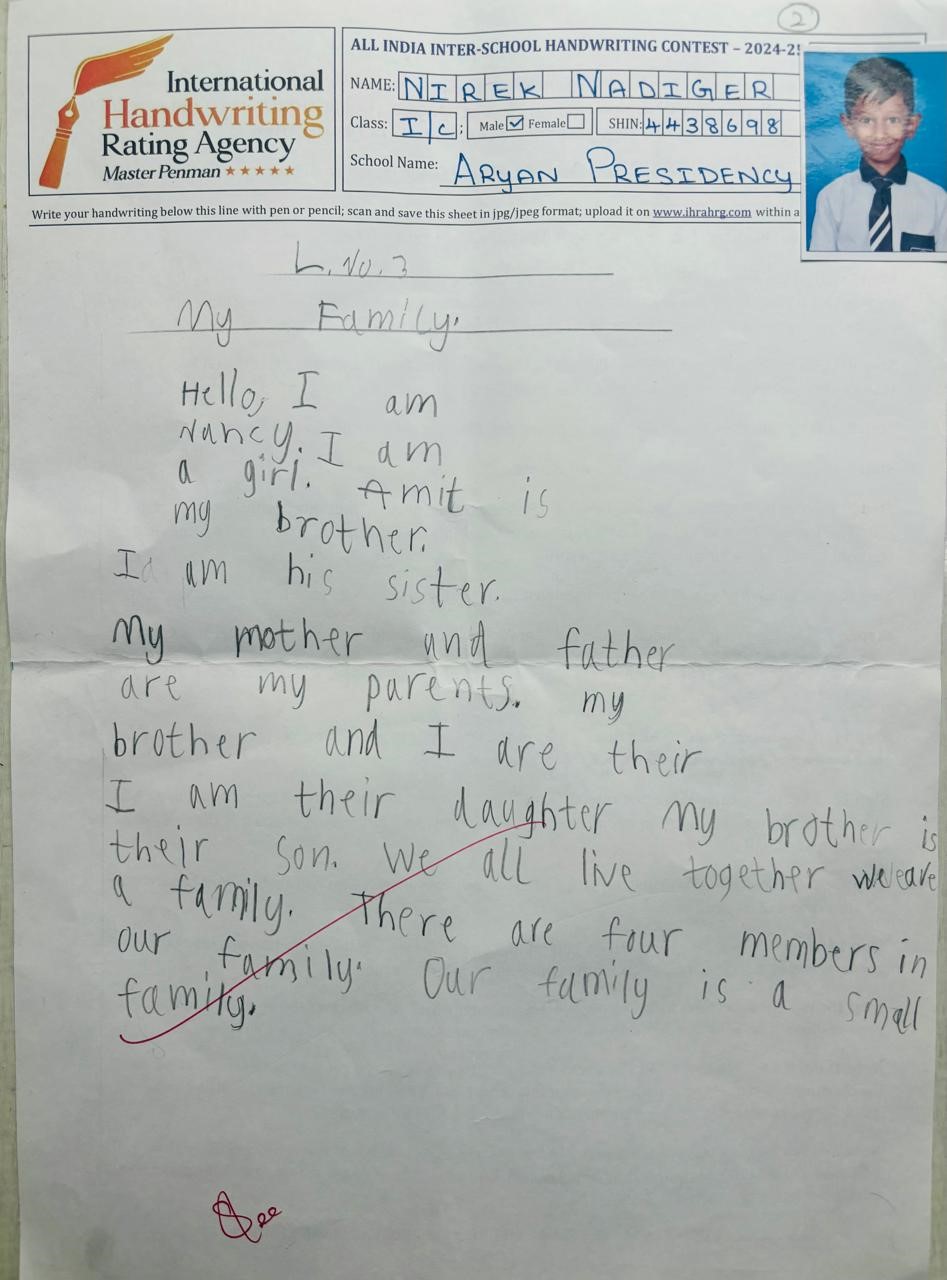 2
International
Handwriting
Rating Agency
Master Penman ★★★★★
ALL INDIA INTER-SCHOOL HANDWRITING CONTEST – 2024-2
NAME: NIREK NADIGER
Class: I C; Male ☑ Female ☐ SHIN: 4438698
School Name: ARYAN PRESIDENCY
Write your handwriting below this line with pen or pencil; scan and save this sheet in jpg/jpeg format; upload it on www.ihrahrg.com within a
L. No. 3
My Family.
Hello, I am
Nancy. I am
a girl. Amit is
my brother.
I am his sister.
My mother and father
are my parents. my
brother and I are their
I am their daughter My brother is
their son. We all live together we are
a family. There are four members in
our family. Our family is a small
family.